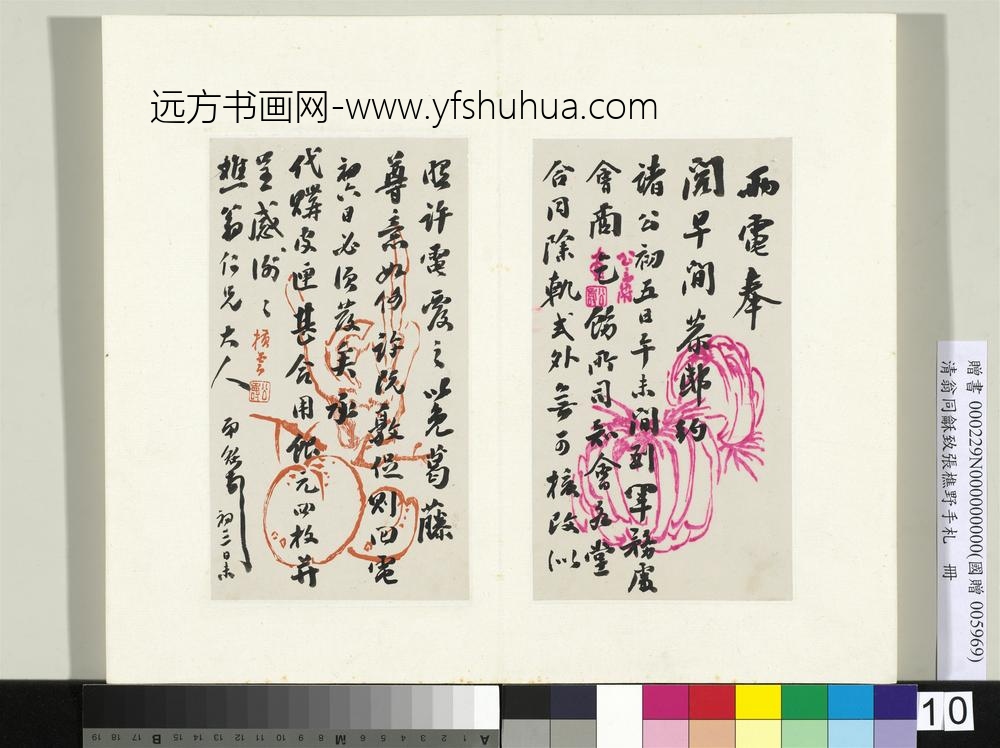 远方书画网-www.yfshuhua.com
兩電奉
閱早間 恭邸約
諸公初五日午未間到軍務處
會商 乞飭所司知會各堂
合同除軌式外無可核改似
照許電覆之以免葛藤
尊意如何許既敦促則回電
初六日必須發矣承
代購皮匣甚合用銀元四枚并
呈感謝
樵翁仁兄大人
初三日未
贈書 000229N000000000(國贈 005969)
清翁同龢致張樵野手札 冊
10
19 18 17 16 B 15 14 13 12 11 10 9 8 M 7 6 5 4 3 2 1 A